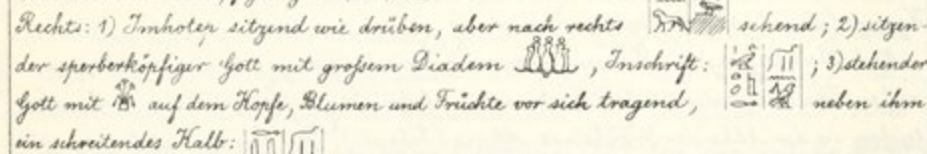 Rechts: 1) Imhotep sitzend wie drüben, aber nach rechts sehend; 2) sitzen-
der sperberköpfiger Gott mit großem Diadem , Inschrift: ; 3) stehender
Gott mit auf dem Kopfe, Blumen und Früchte vor sich tragend, neben ihm
ein schreitendes Kalb: